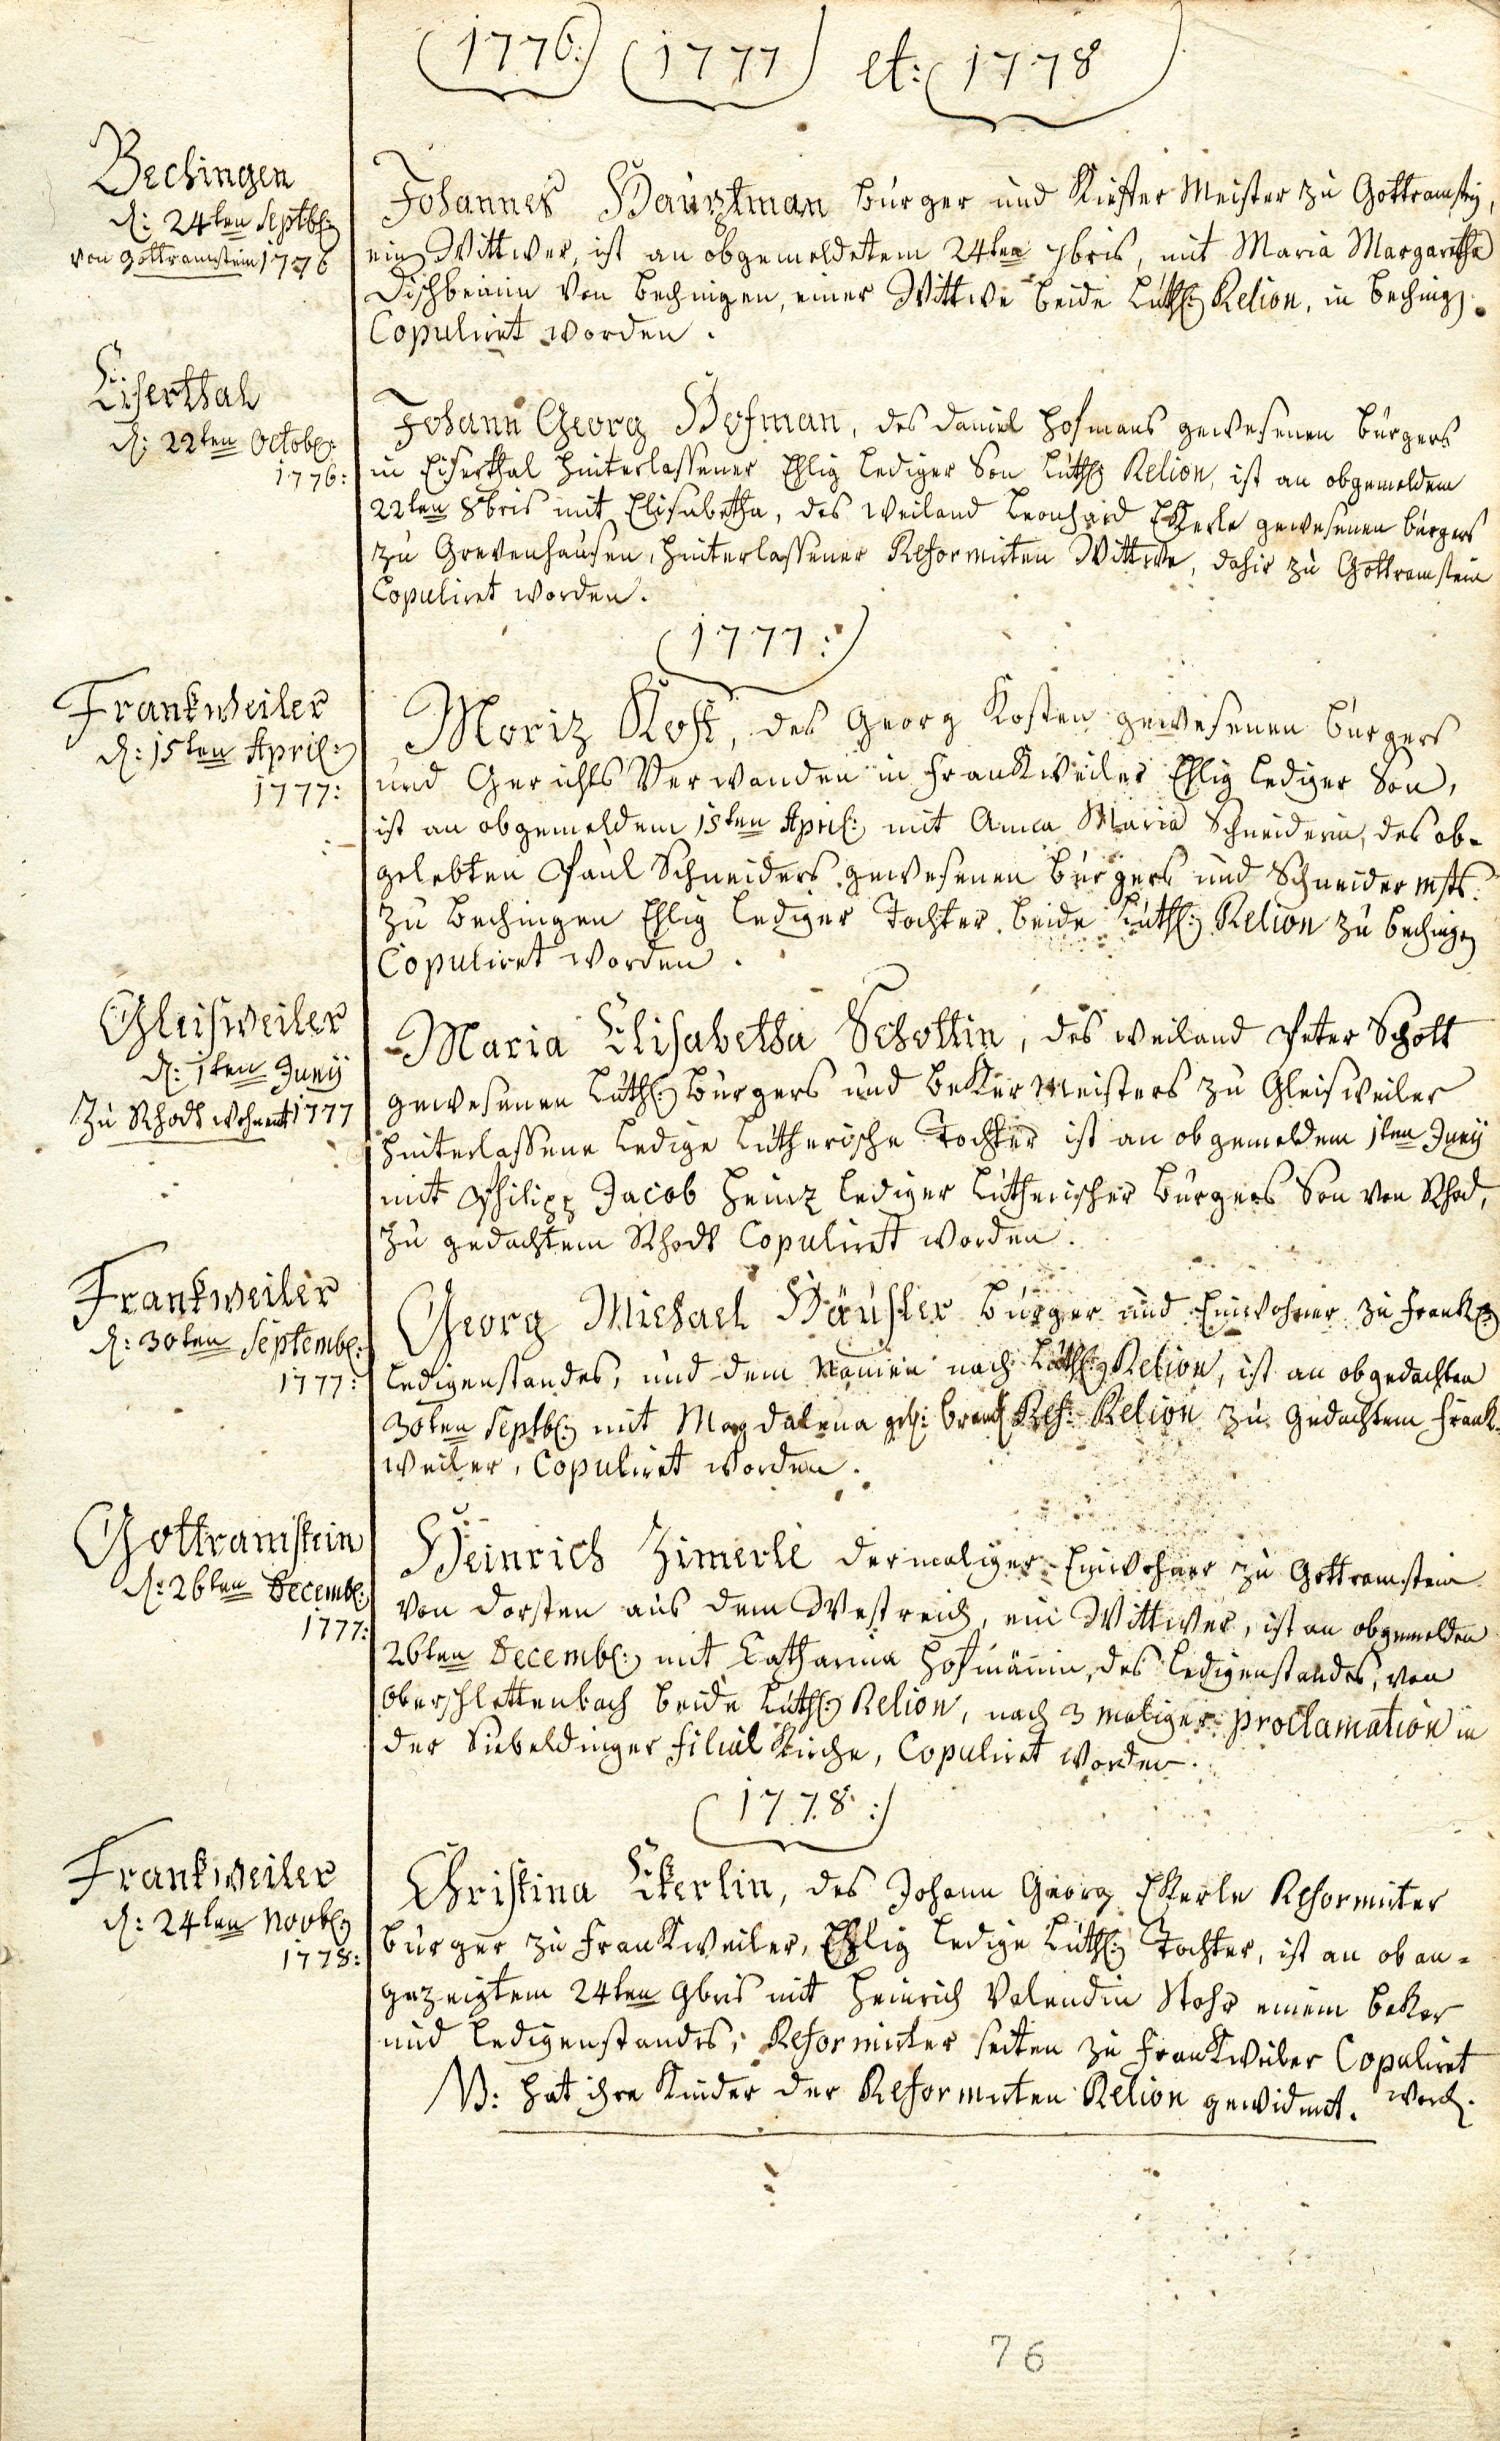 (1776:) (1777) et: (1778)
Bechingen
d: 24ten Septbr:
von Gottramstein 1776
Johannes Hauptman burger und Kiefter Meister zu Gottramstn,
ein Wittwer, ist an obgemeldetem 24ten 7bris, mit Maria Margaretha
Dischbeinin von Bechingen, einer Wittwe beide Luth: Relion, in Beching.
Copuliret worden.
Eiserthal
d: 22ten Octobr:
1776:
Johann Georg Hofman, des Daniel Hofmans gewesenen burgers
in Eiserthal hinterlassener Ehlig lediger Son Luth: Relion, ist an obgemeldem
22ten 8bris mit Elisabetha, des weiland Leonhard Ekerle gewesenen burgers
zu Grevenhausen, hinterlassener Reformirten Wittwe, dahir zu Gottramstein
Copuliret worden.
(1777:)
Frankweiler
d: 15ten April:
1777:
Moriz Kost, des Georg Kosten gewesenen burgers
und Gerichts Verwanden in Frankweiler Ehlig lediger Son,
ist an obgemeldem 15ten April: mit Anna Maria Schneiderin, des ob-
gelebten Paul Schneiders gewesenen burgers und Schneider mstr:
zu Bechingen Ehlig lediger Tochter beide Luth: Relion zu Bechingen
Copuliret worden.
Gleisweiler
d: 1ten Juny
zu Rhodt wohnent 1777
Maria Elisabetha Schottin, des weiland Peter Schott
gewesenen Luth: burgers und beker Meisters zu Gleisweiler
hinterlassene ledige Lutherische Tochter ist an obgemeldem 1ten Juny
mit Philipp Jacob Heinz lediger Lutherischer burgers Son von Rhod,
zu gedachtem Rhodt Copuliret worden.
Frankweiler
d: 30ten Septembr:
1777:
Georg Michael Häusler burger und Einwohner zu Frankw:
ledigenstandes, und dem Namen nach Luth: Relion, ist an obgedachten
30ten Septbr: mit Magdalena geb: Ref: Relion zu gedachtem Frank-
weiler, Copuliret worden.
Gottramstein
d: 26ten Decembr:
1777:
Heinrich Zimerle dermaliger Einwohner zu Gottramstein
von Dorsten aus dem Westreich, ein Wittwer, ist an obgemelden
26ten Decembr: mit Catharina Hofmännin, des ledigenstandes, von
Oberschlettenbach beide Luth: Relion, nach 3 maliger proclamation in
der Siebeldinger filial Kirche, Copuliret worden.
(1778:)
Frankweiler
d: 24ten Novbr
1778:
Christina Ekerlin, des Johann Georg Ekerle Reformirter
burger zu Frankweiler, Ehlig ledige Luth: Tochter, ist an oban-
gezeigtem 24ten 9bris mit Heinrich Valendin Stohr einem beker
und ledigenstandes, Reformirter seiten zu Frankweiler Copuliret
NB: hat ihre Kinder der Reformirten Relion gewidmet. word.
76